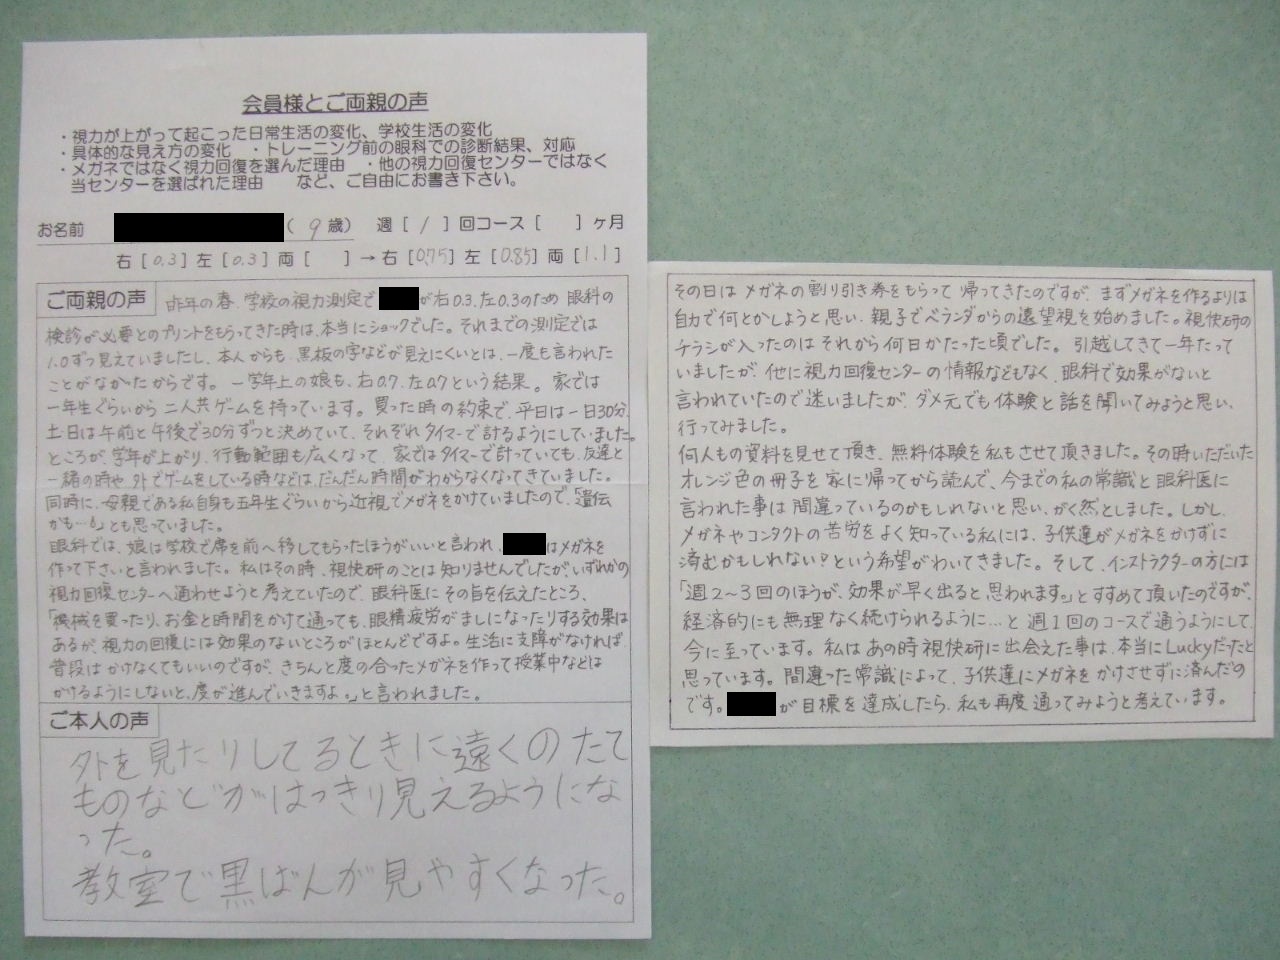 会員様とご両親の声
・視力が上がって起こった日常生活の変化、学校生活の変化
・具体的な見え方の変化　・トレーニング前の眼科での診断結果、対応
・メガネではなく視力回復を選んだ理由　・他の視力回復センターではなく
当センターを選ばれた理由　　など、ご自由にお書き下さい。
お名前　（ 9 歳）　週 [ 1 ] 回コース [　] ヶ月
右 [0.3] 左 [0.3] 両 [　] → 右 [0.75] 左 [0.85] 両 [1.1]
ご両親の声　昨年の春、学校の視力測定で　が右0.3、左0.3のため 眼科の
検診が必要とのプリントをもらってきた時は、本当にショックでした。それまでの測定では
1.0ずつ見えていましたし、本人からも、黒板の字などが見えにくいとは、一度も言われた
ことがなかったからです。一学年上の娘も、右0.7、左0.7という結果。家では
一年生ぐらいから 二人共ゲームを持っています。買った時の約束で、平日は一日30分、
土日は午前と午後で30分ずつと決めていて、それぞれタイマーで計るようにしていました。
ところが、学年が上がり、行動範囲も広くなって、家ではタイマーで計っていても、友達と
一緒の時や、外でゲームをしている時などは、だんだん時間がわからなくなってきていました。
同時に、母親である私自身も五年生ぐらいから近視でメガネをかけていましたので、「遺伝
かも…」とも思っていました。
眼科では、娘は学校で席を前へ移してもらったほうがいいと言われ、　はメガネを
作って下さいと言われました。私はその時、視快研のことは知りませんでしたが、いずれかの
視力回復センターへ通わせようと考えていたので、眼科医に その旨を伝えたところ、
「機械を買ったり、お金と時間をかけて通っても、眼精疲労がましになったりする効果は
あるが、視力の回復には効果のないところがほとんどですよ。生活に支障がなければ、
普段はかけなくてもいいのですが、きちんと度の合ったメガネを作って授業中などは
かけるようにしないと、度が進んでいきますよ。」と言われました。
ご本人の声
外を見たりしてるときに遠くのたて
ものなどがはっきり見えるようにな
った。
教室で黒ばんが見やすくなった。
その日は メガネの割り引き券をもらって 帰ってきたのですが、まずメガネを作るよりは
自力で何とかしようと思い、親子でベランダからの遠望視を始めました。視快研の
チラシが入ったのは それから何日かたった頃でした。引越してきて一年たって
いましたが、他に視力回復センターの情報などもなく、眼科で効果がないと
言われていたので迷いましたが、ダメ元でも体験と話を聞いてみようと思い、
行ってみました。
何人もの資料を見せて頂き、無料体験を私もさせて頂きました。その時いただいた
オレンジ色の冊子を 家に帰ってから読んで、今までの私の常識と眼科医に
言われた事は 間違っているのかもしれないと思い、がく然としました。しかし、
メガネやコンタクトの苦労をよく知っている私には、子供達がメガネをかけずに
済むかもしれない?という希望がわいてきました。そして、インストラクターの方には
「週2～3回のほうが、効果が早く出ると思われます。」とすすめて頂いたのですが、
経済的にも無理なく続けられるように…と 週1回のコースで通うようにして、
今に至っています。私は あの時視快研に出会えた事は、本当にLuckyだったと
思っています。間違った常識によって、子供達にメガネをかけさせずに済んだの
です。　が目標を達成したら、私も再度通ってみようと考えています。